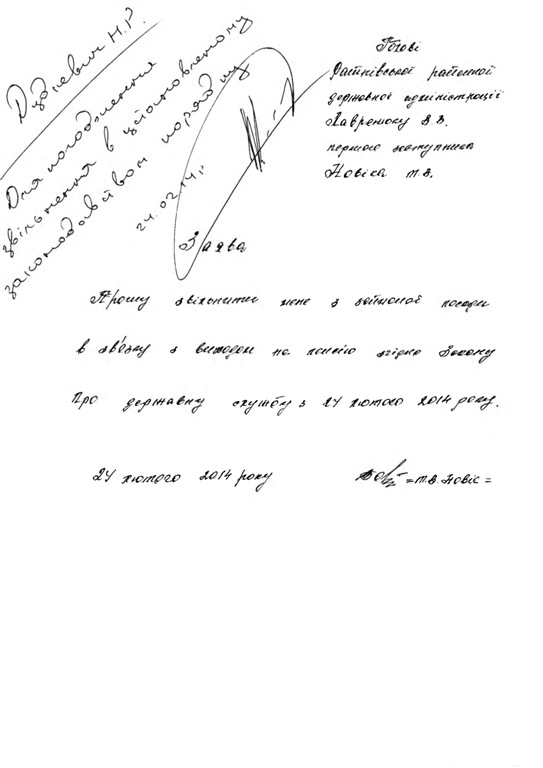 Дудкевич Н.Р.
Для погодження
звільнення в установленому
законодавством порядку
24.02.14 р.
Голові
Ратнівської районної
державної адміністрації
Лавренюку В.В.
першого заступника
Новіка М.В.
Заява
Прошу звільнити мене з займаної посади
в зв'язку з виходом на пенсію згідно Закону
Про державну службу з 24 лютого 2014 року.
24 лютого 2014 року
= М.В. Новік =